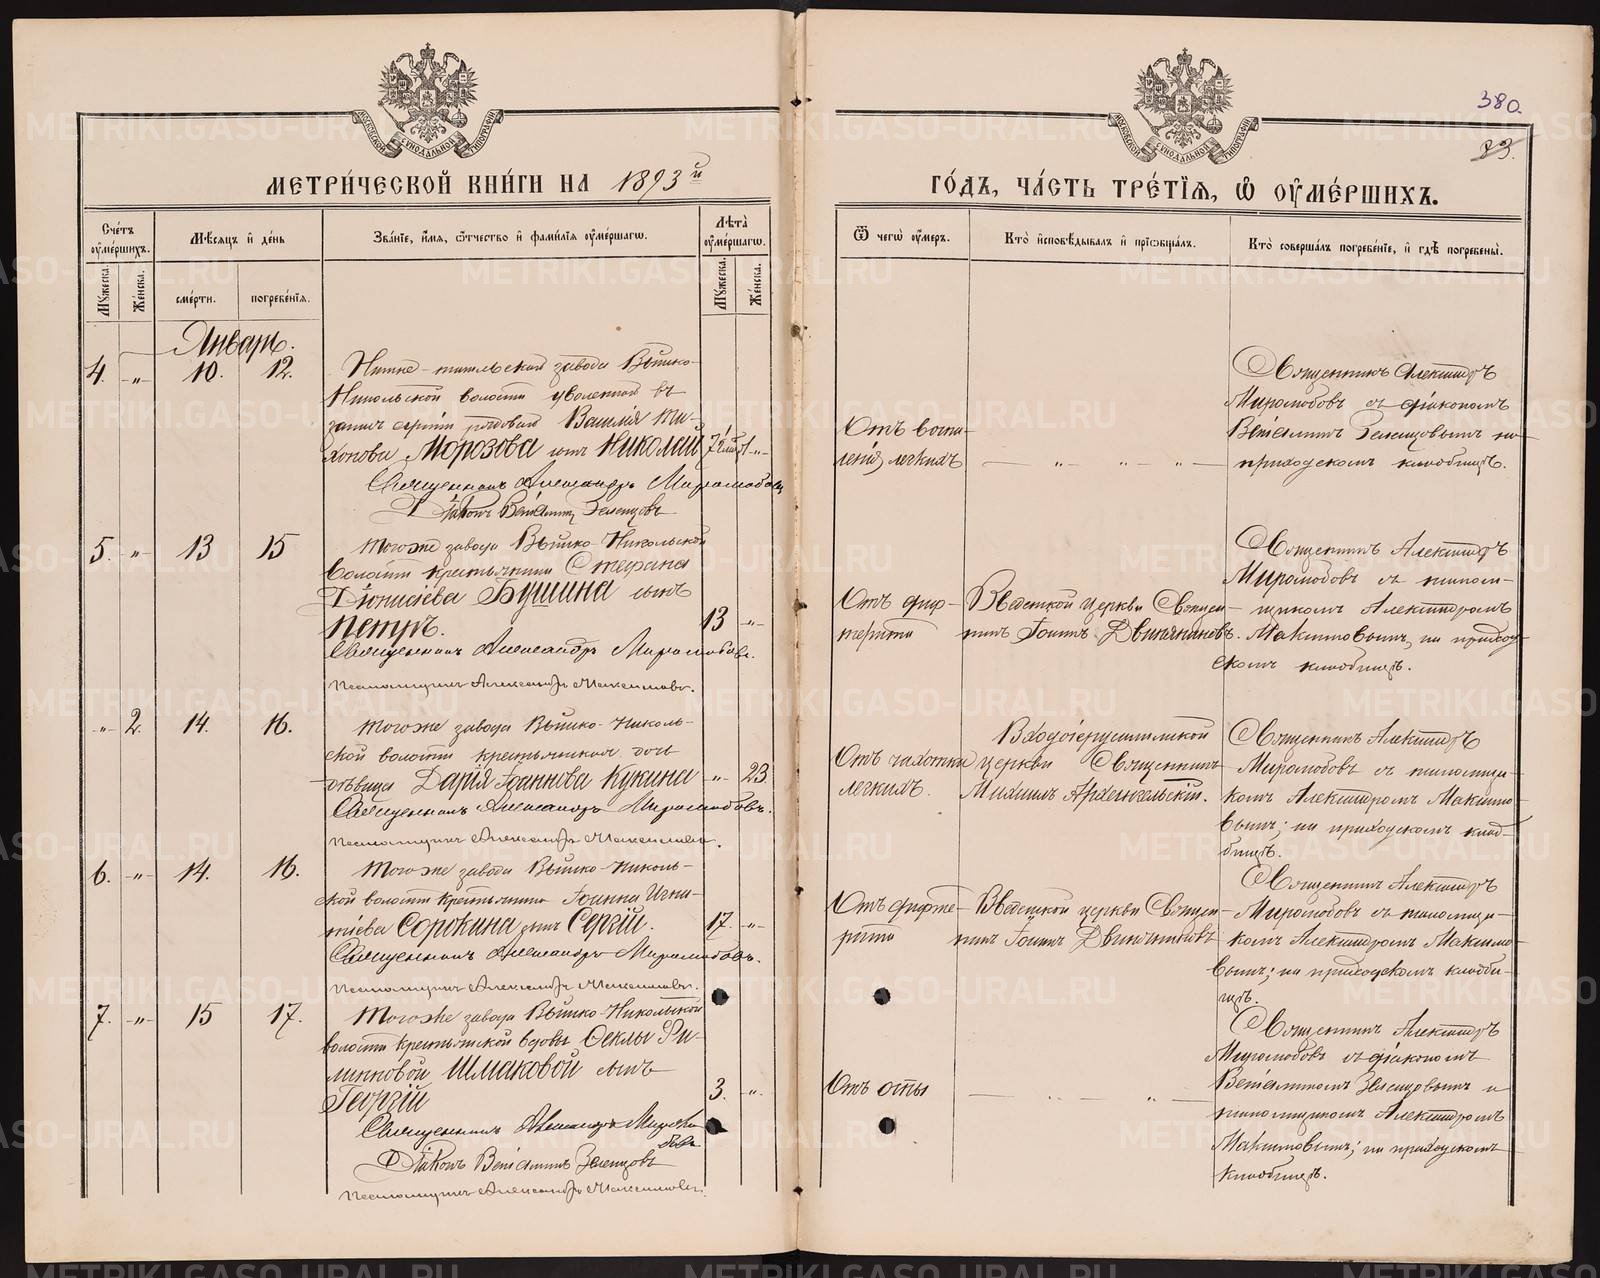 380.
83.
МЕТРИ́ЧЕСКОЙ КНИ́ГИ НА 1893й
ГО́ДЪ, ЧА́СТЬ ТРЕ́ТІЯ, Ѿ ОУМЕ́РШИХЪ.
МОСКОВСКОЙ СУНОДАЛЬНОЙ ТИПОГРАФІИ
МОСКОВСКОЙ СУНОДАЛЬНОЙ ТИПОГРАФІИ
Сче́тъ оумéршихъ.
Мужеска.
Же́нска.
Мѣсяцъ и де́нь
сме́рти.
погребе́нія.
Зва́ніе, и́мя, ѻтчество и фами́лія оуме́ршагѡ.
Лѣта̀ оуме́ршагѡ.
Мужеска.
Же́нска.
Ѿ чегѡ̀ оу́меръ.
Кто̀ исповѣ́дывалъ и пріѡбща́лъ.
Кто̀ соверша́лъ погребе́ніе, и гдѣ̀ погребены̀.
Январь.
4. -„- 10. 12.
Нижне-тагильскаго завода Выйско-
Никольской волости уволенный въ
запасъ арміи рядоваго Василія Ти-
хонова Морозова сынъ Николай
-„-
Священникъ Александръ Миролюбовъ
Діаконъ Веніаминъ Зеленцовъ
Отъ воспа-
ленія легкихъ
-„- -„- -„-
Священникъ Александръ
Миролюбовъ съ діакономъ
Веніаминомъ Зеленцовымъ на
приходскомъ кладбищѣ.
5. -„- 13 15
Тогоже завода Выйско-Никольской
волости крестьянина Стефана
Діонисіева Бушина сынъ
Петръ.
13 -„-
Священникъ Александръ Миролюбовъ.
Псаломщикъ Александръ Максимовъ.
Отъ диф-
терита
Введенской церкви Священ-
никъ Іоаннъ Двиняниновъ.
Священникъ Александръ
Миролюбовъ съ псалом-
щикомъ Александромъ
Максимовымъ, на приход-
скомъ кладбищѣ.
-„- 2. 14. 16.
Тогоже завода Выйско-Николь-
ской волости крестьянская дочь
дѣвица Дарія Іоаннова Кукина
-„- 23
Священникъ Александръ Миролюбовъ.
Псаломщикъ Александръ Максимовъ.
Отъ чахотки
легкихъ.
Входоіерусалимской
церкви Священникъ
Михаилъ Архангельскій.
Священникъ Александръ
Миролюбовъ съ псаломщи-
комъ Александромъ Максимо-
вымъ; на приходскомъ клад-
бищѣ.
6. -„- 14. 16.
Тогоже завода Выйско-Николь-
ской волости крестьянина Іоанна Игна-
тіева Сорокина сынъ Сергій.
17. -„-
Священникъ Александръ Миролюбовъ.
Псаломщикъ Александръ Максимовъ.
Отъ дифте-
рита
Введенской церкви Священ-
никъ Іоаннъ Двиняниновъ
Священникъ Александръ
Миролюбовъ съ псаломщи-
комъ Александромъ Максимо-
вымъ; на приходскомъ кладби-
щѣ.
7. -„- 15 17.
Тогоже завода Выйско-Никольской
волости крестьянской вдовы Ѳеклы Фи-
липповой Шмаковой сынъ
Георгій
3. -„-
Священникъ Александръ Миролю-
бовъ
Діаконъ Веніаминъ Зеленцовъ
Псаломщикъ Александръ Максимовъ.
Отъ оспы
-„-
Священникъ Александръ
Миролюбовъ съ діакономъ
Веніаминомъ Зеленцовымъ и
псаломщикомъ Александромъ
Максимовымъ; на приходскомъ
кладбищѣ.
METRIKI.GASO-URAL.RU